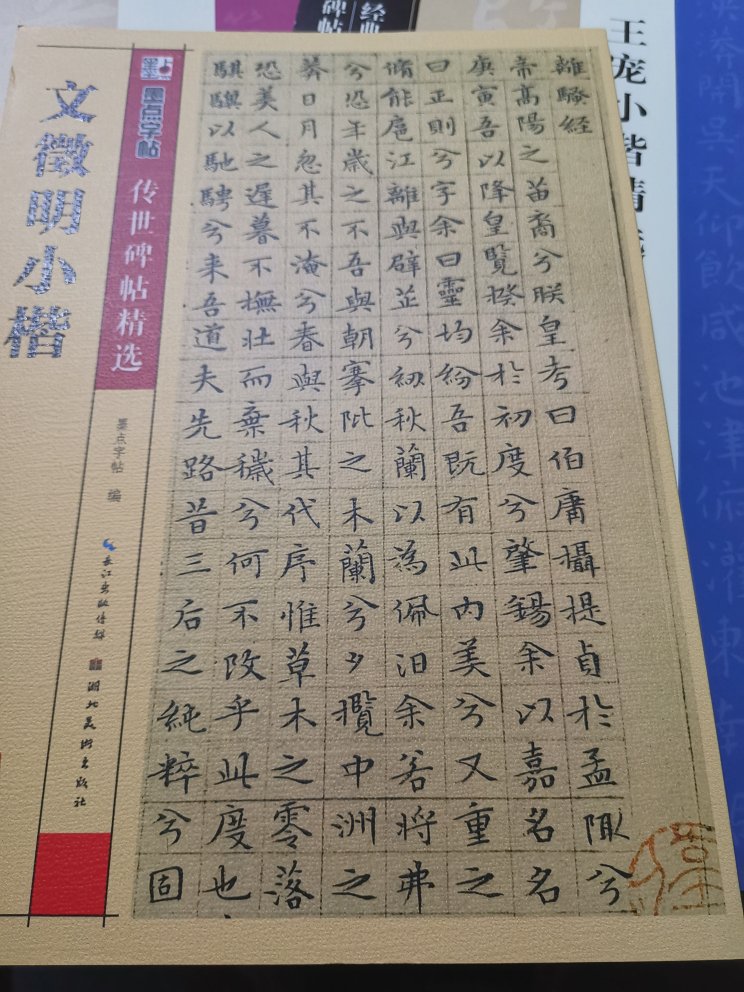 文徵明小楷
墨点字帖
传世碑帖精选
墨点字帖 编
长江出版传媒
湖北美术出版社
離騷経
帝高陽之苗裔兮朕皇考曰伯庸攝提貞於孟陬兮
庚寅吾以降皇覽揆余於初度兮肇錫余以嘉名名
曰正則兮字余曰靈均紛吾既有此内美兮又重之
脩能扈江離與辟芷兮紉秋蘭以為佩汩余若將弗
兮恐年歲之不吾與朝搴阰之木蘭兮夕攬中洲之
莽日月忽其不淹兮春與秋其代序惟草木之零落
恐美人之遲暮不撫壯而棄穢兮何不改乎此度也
騏驥以馳騁兮来吾道夫先路昔三后之純粹兮固
经典
碑帖
王宠小楷精
開吳天仰飲咸池津俯灌東南